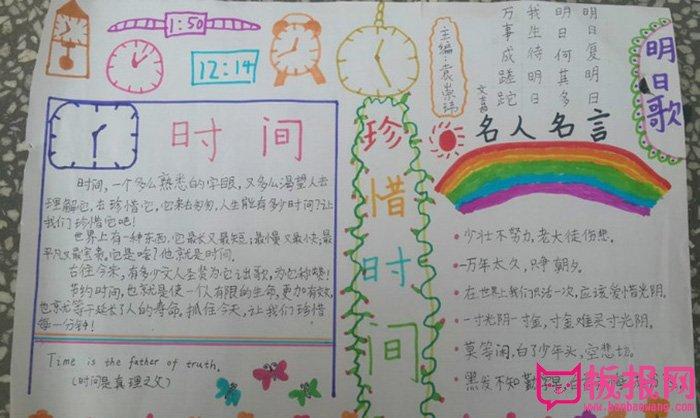 1:50
12:14
时间
时间，一个多么熟悉的字眼，又多么渴望人去
理解它，去珍惜它，它来去匆匆，人生能有多少时间？让
我们珍惜它吧！
世界上有一种东西，它最长又最短；最慢又最快；最
平凡又最宝贵。它是啥？他就是时间。
古往今来，有多少文人圣贤为它讴歌，为它称赞！
节约时间，也就是使一个人有限的生命，更加有效，
也就等于延长了人的寿命，抓住今天，让我们珍惜
每一分钟！
Time is the father of truth.
（时间是真理之父）
珍惜时间
主编：袁崇玮
明日歌
文嘉
明日复明日
明日何其多
我生待明日
万事成蹉跎
名人名言
少壮不努力，老大徒伤悲。
一万年太久，只争朝夕。
在世界上我们只活一次，应该爱惜光阴。
一寸光阴一寸金，寸金难买寸光阴。
莫等闲，白了少年头，空悲切。
黑发不知勤学早，
板报网
www.banbaowang.com